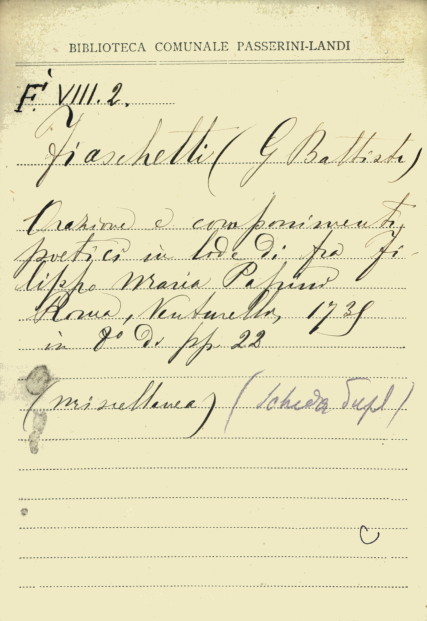 BIBLIOTECA COMUNALE PASSERINI-LANDI
F. VIII. 2.
Fiaschetti (G Battista)
Orazione e componimenti
poetici in lode di fra Fi-
lippo Maria
Roma, 1735
in 8º di pp. 22
(miscellanea) (scheda dupl)
C